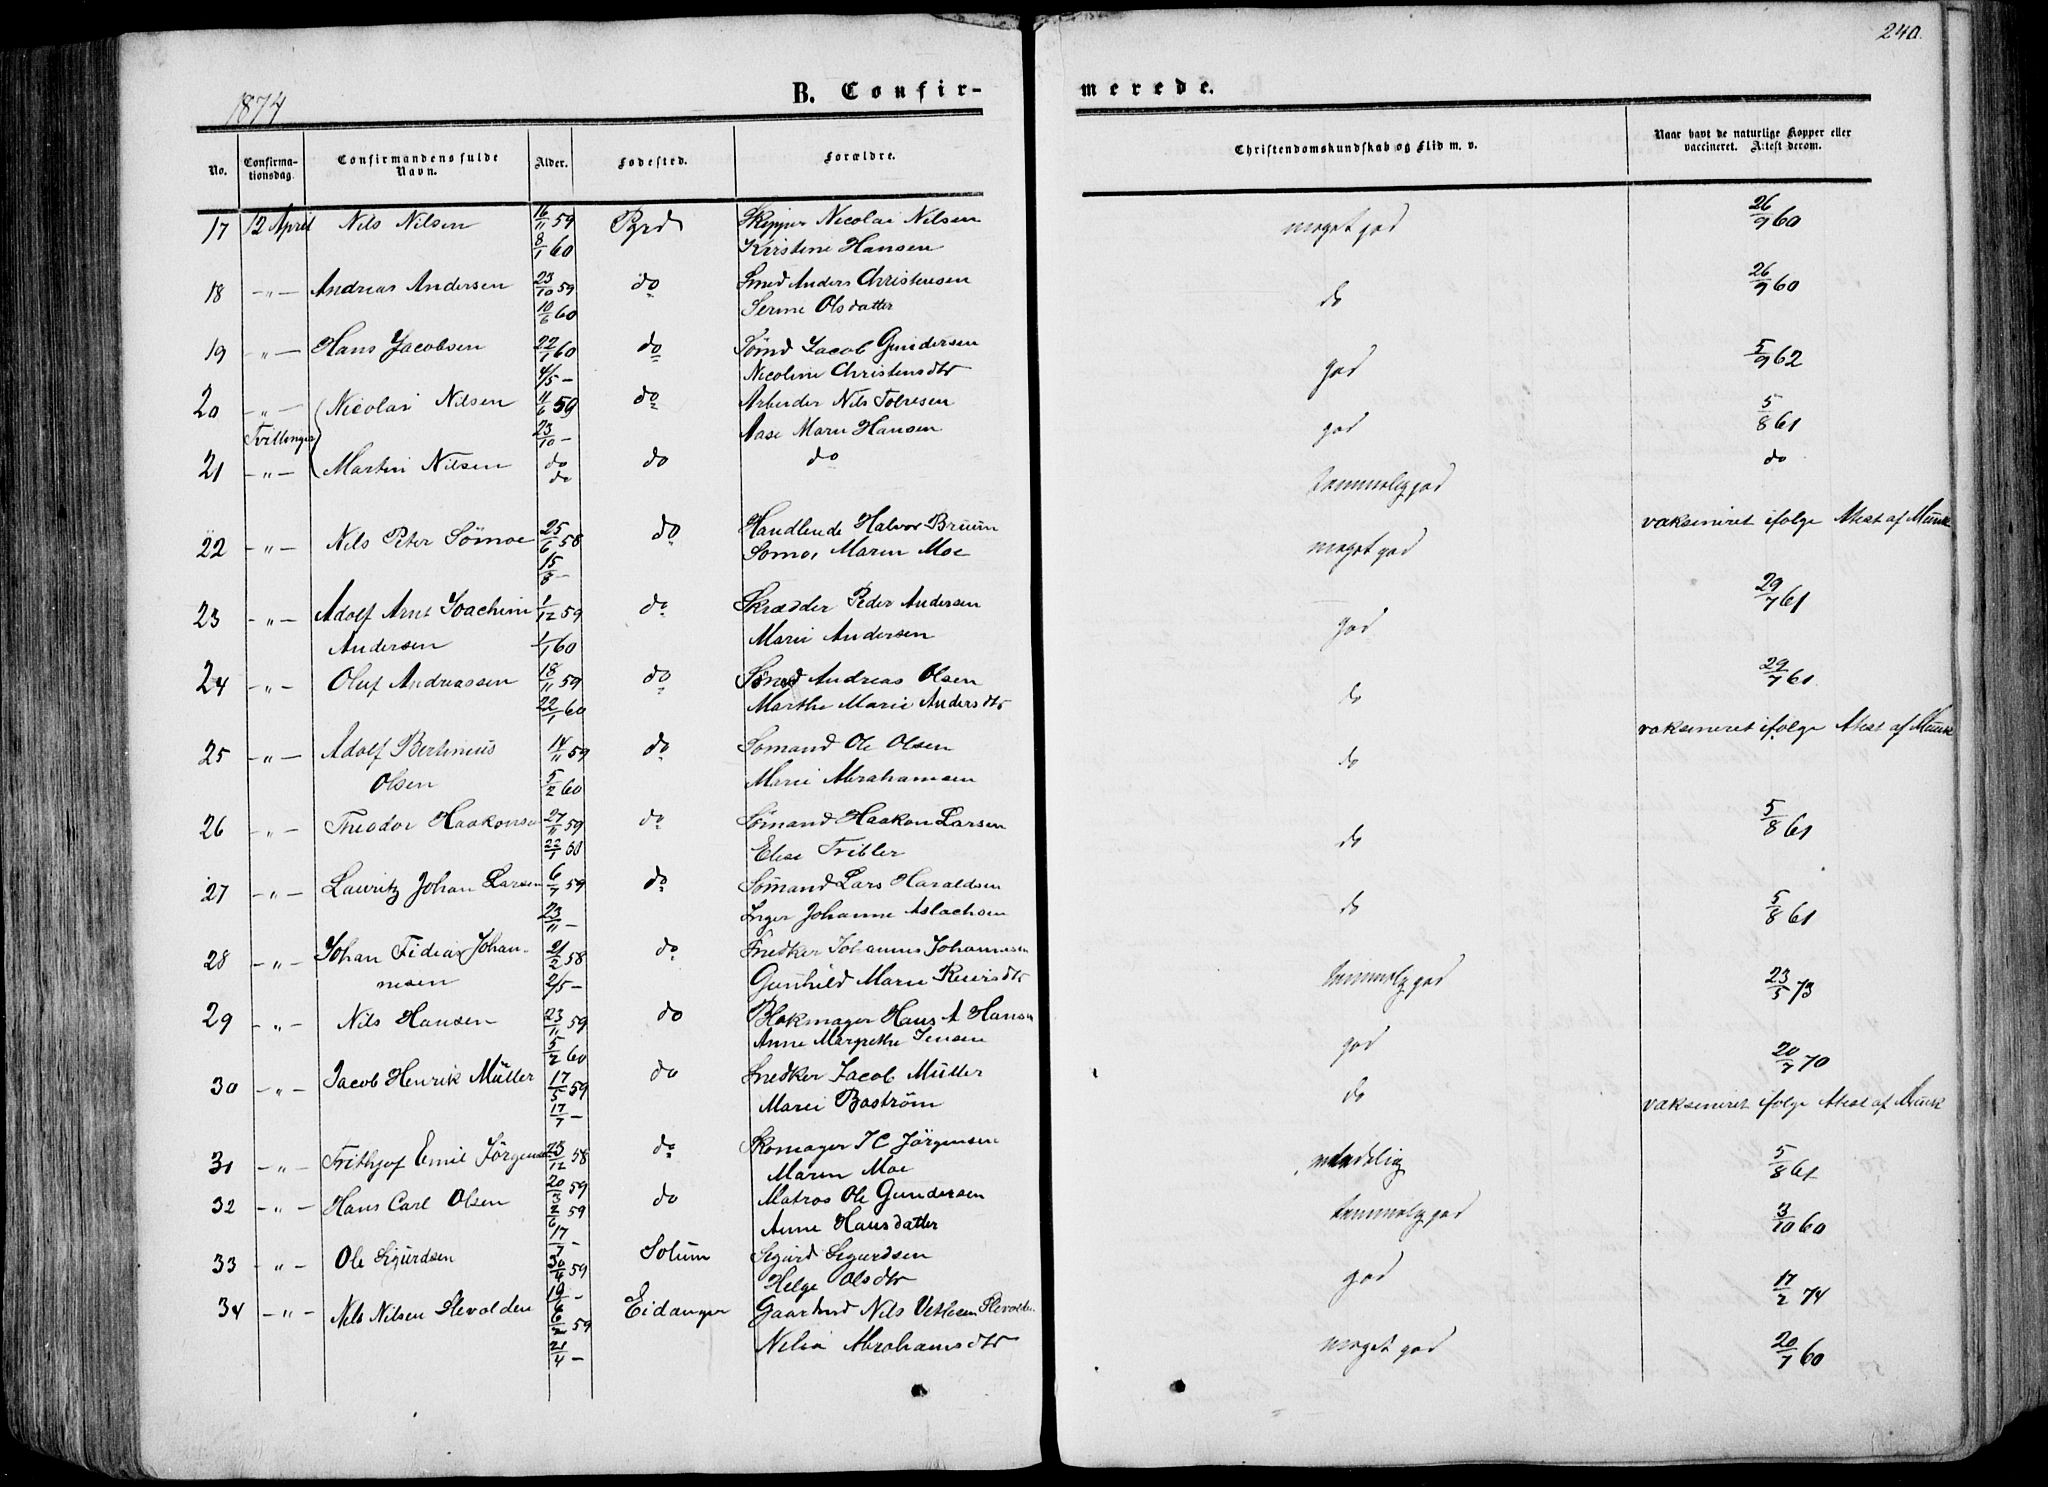 240.
1874
B. Confir-
merede.
No.
Confirma-
tionsdag.
Confirmandens fulde
Navn.
Alder.
Fødested.
Forældre.
Christendomskundskab og Flid m. v.
Naar havt de naturlige Kopper eller
vaccineret. Attest derom.
17 12 April Nils Nilsen 16/11 59 Skipper Nicolai Nilsen meget god 26/9 60
8/1 60 Kirstine Hansen
18 -"- Andreas Andersen 23/10 59 do Smed Anders Christensen do 26/9 60
10/6 60 Serine Olsdatter
19 -"- Hans Jacobsen 22/1 60 do Sømd Jacob Gundersen god 5/9 62
4/5 - Nicoline Christensdtr
20 -"- Nicolai Nilsen 11/6 59 do Arbeider Nils Tolvesen god 5/8 61
Tvillinger 23/10 - Aase Marie Hansen
21 -"- Martin Nilsen do do do temmelig god do
do
22 -"- Nils Peter Sømoe 25/6 58 do Handlende Halvor Bruun meget god vaksineret ifølge Attest af Munk
15/8 - Somoe Maren Moe
23 -"- Adolf Arnt Joachim 1/12 59 do Skrædder Peder Andersen god 29/7 61
Andersen 1/1 60 Marie Andersen
24 -"- Oluf Andreassen 18/11 59 do Smed Andreas Olsen do 29/7 61
22/1 60 Marthe Marie Andersdtr
25 -"- Adolf Bertinius 14/11 59 do Sømand Ole Olsen do vaksineret ifølge Attest af Munk
Olsen 5/2 60 Marie Abrahamsen
26 -"- Theodor Haakonsen 27/11 59 do Sømand Haakon Larsen do 5/8 61
22/1 60 Elise Tribler
27 -"- Lauritz Johan Larsen 6/7 59 do Sømand Lars Haraldsen do 5/8 61
23/11 - Inger Johanne Aslachsen
28 -"- Johan Fidias Johan- 21/2 58 do Snedker Johannes Johannesen temmelig god 23/5 73
nesen 2/5 - Gunhild Marie
29 -"- Nils Hansen 23/11 59 do Blokmager Hans A Hansen god 20/7 70
5/2 60 Anne Margrethe Jensen
30 -"- Jacob Henrik Müller 17/5 59 do Snedker Jacob Müller do vaksineret ifølge Attest af Munk
17/7 - Marie Boström
31 -"- Frithjof Emil Jörgensen 25/12 58 do Skomager J C Jörgensen maadelig 5/8 61
20/3 59 Maren Moe
32 -"- Hans Carl Olsen 2/6 59 do Matros Ole Gundersen temmelig god 3/10 60
17/7 - Anne Hansdatter
33 -"- Ole Sigurdsen 30/4 59 Solum Sigurd Sigurdsen god 17/2 74
19/6 - Helge Olsdtr
34 -"- Nils Nilsen Slevolden 6/2 59 Eidanger Gaardmd Nils Slevolden meget god 20/7 60
21/4 - Nilia Abrahamsdtr